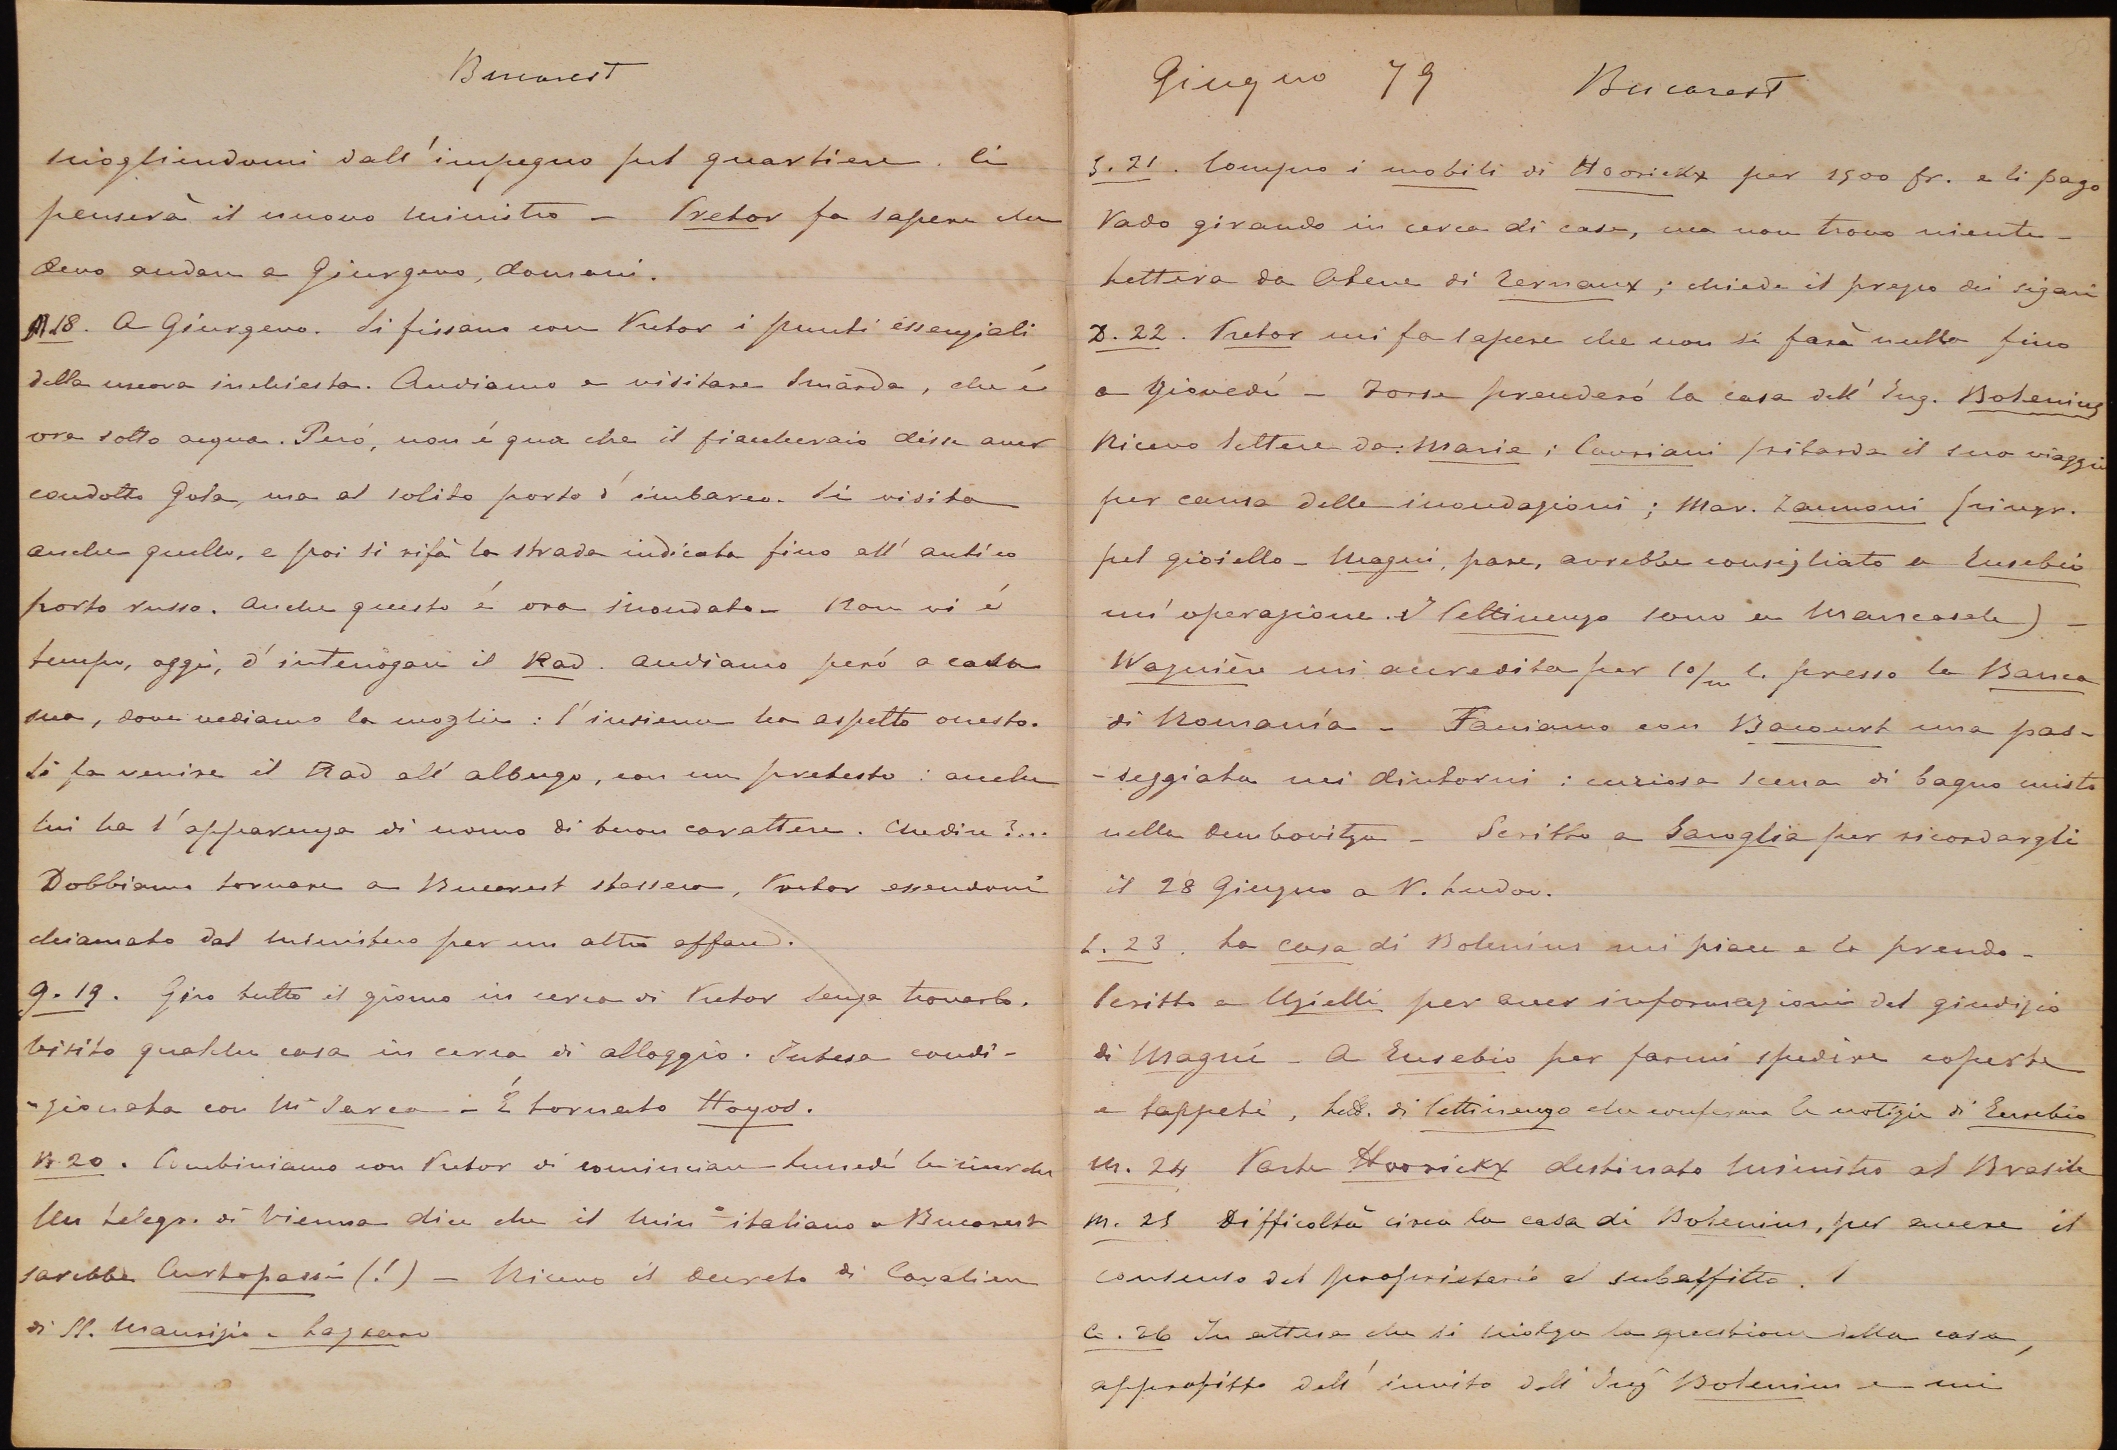 Bucarest
sciogliendomi dall'impegno pel quartiere. Ci
penserà il nuovo ministro – Pretor fa sapere che
devo andare a Giurgevo, domani.
M.18. A Giurgevo. Si fissano con Pretor i punti essenziali
della nuova inchiesta. Andiamo a visitare Smârda, che è
ora sotto acqua. Però, non é qua che il fiacheraio disse aver
condotto Gola, ma al solito porto d'imbarco. Si visita
anche quello, e poi si rifà la strada indicata fino all'antico
porto russo. Anche questo é ora inondato – Non vi é
tempo, oggi, d'interrogare il Rad. Andiamo peró a casa
sua, dove vediamo la moglie: l'insieme ha aspetto onesto.
Si fa venire il Rad all'albergo, con un pretesto: anche
lui ha l'apparenza di uomo di buon carattere. Che dire?...
Dobbiamo tornare a Bucarest stassera, Pretor essendovi
chiamato dal ministero per un altro affare.
G. 19. Giro tutto il giorno in cerca di Pretor senza trovarlo.
Visito qualche casa in cerca di alloggio. Intesa condi-
-zionata con Mr Sarca – É tornato Hoyos.
V. 20. Combiniamo con Pretor di cominciare lunedí le ricerche
Un telegr. di Vienna dice che il Minº italiano a Bucarest
sarebbe Curtopassi (!) – Ricevo il decreto di Cavaliere
di SS. Maurizio e Lazzaro
Giugno 79 Bucarest
S. 21. Compro i mobili di Hoorickx per 1500 fr. e li pago
Vado girando in cerca di case, ma non trovo niente –
Lettera da Atene di Ternaux; chiede il prezzo dei sigari
D. 22. Pretor mi fa sapere che non si farà nulla fino
a Giovedí – Forse prenderó la casa dell'Ing. Bolenius
Ricevo lettere da: Maria; Cavriani (ritarda il suo viaggio
per causa delle inondazioni; Mar. Zannoni (ringr.
pel gioiello – Magni, pare, avrebbe consigliato a Eusebio
un'operazione. I Cettinengo sono a Mancasale) –
Wagnière mi accredita per 10/m l. presso la Banca
di Romanía – Facciamo con Bacourt una pas-
-seggiata nei dintorni: curiosa scena di bagno misto
nella Dembovitza – Scritto a Saroglia per ricordargli
il 28 Giugno a V. Ludov.
L. 23. La casa di Bolenius mi piace e la prendo –
Scritto a Uzielli per aver informazioni del giudizio
di Magni – A Eusebio per farmi spedire coperte
e tappeti, Lett. di Cettinengo che conferma le notizie di Eusebio
M. 24 Parte Hoorickx destinato Ministro al Brasile
M. 25 Difficoltà circa la casa di Bolenius, per avere il
consenso del proprietario al subaffitto.
G. 26 In attesa che si sciolga la questione della casa,
approfitto dell'invito dell'Ingr Bolenius e mi